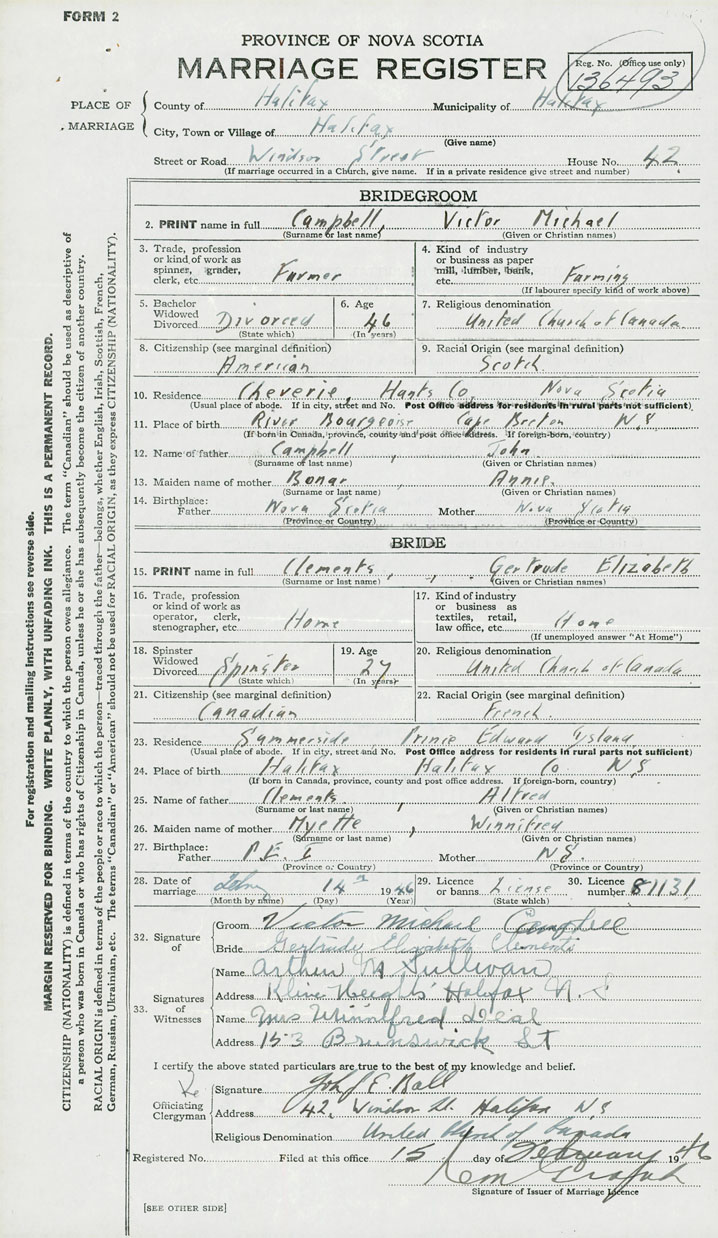 FORM 2
PROVINCE OF NOVA SCOTIA
MARRIAGE REGISTER
Reg. No. (Office use only)
136493
PLACE OF MARRIAGE
County of Halifax Municipality of Halifax
City, Town or Village of Halifax
(Give name)
Street or Road Windsor Street House No. 42
(If marriage occurred in a Church, give name. If in a private residence give street and number)
BRIDEGROOM
2. PRINT name in full Campbell, Victor Michael
(Surname or last name) (Given or Christian names)
3. Trade, profession or kind of work as spinner, grader, clerk, etc. Farmer
4. Kind of industry or business as paper mill, lumber, bank, etc. Farming
(If labourer specify kind of work above)
5. Bachelor Widowed Divorced Divorced
(State which)
6. Age 46
(In years)
7. Religious denomination
United Church of Canada
8. Citizenship (see marginal definition)
American
9. Racial Origin (see marginal definition)
Scotch
10. Residence Cheverie, Hants Co, Nova Scotia
(Usual place of abode. If in city, street and No. Post Office address for residents in rural parts not sufficient)
11. Place of birth River Bourgeoise Cape Breton N.S
(If born in Canada, province, county and post office address. If foreign-born, country)
12. Name of father Campbell, John
(Surname or last name) (Given or Christian names)
13. Maiden name of mother Bonar, Annie
(Surname or last name) (Given or Christian names)
14. Birthplace: Father Nova Scotia Mother Nova Scotia
(Province or Country) (Province or Country)
BRIDE
15. PRINT name in full Clements, Gertrude Elizabeth
(Surname or last name) (Given or Christian names)
16. Trade, profession or kind of work as operator, clerk, stenographer, etc. Home
17. Kind of industry or business as textiles, retail, law office, etc. Home
(If unemployed answer "At Home")
18. Spinster Widowed Divorced Spinster
(State which)
19. Age 27
(In years)
20. Religious denomination
United Church of Canada
21. Citizenship (see marginal definition)
Canadian
22. Racial Origin (see marginal definition)
French.
23. Residence Summerside Prince Edward Island
(Usual place of abode. If in city, street and No. Post Office address for residents in rural parts not sufficient)
24. Place of birth Halifax Halifax Co N.S
(If born in Canada, province, county and post office address. If foreign-born, country)
25. Name of father Clements, Alfred
(Surname or last name) (Given or Christian names)
26. Maiden name of mother Myette, Winnifred
(Surname or last name) (Given or Christian names)
27. Birthplace: Father P.E.I Mother NS.
(Province or Country) (Province or Country)
28. Date of marriage 14 1946
(Month by name) (Day) (Year)
29. Licence or banns License
(State which)
30. Licence number 81131
32. Signature of
Groom Victor Michael Campbell
Bride Gertrude Elizabeth Clements
33. Signatures of Witnesses
Name Arthur M Sullivan
Address Kline Heights Halifax N.S
Name Mrs Winnifred Deal
Address 153 Brunswick St
I certify the above stated particulars are true to the best of my knowledge and belief.
Officiating Clergyman
Signature John E. Ball
Address 42, Windsor St. Halifax N.S
Religious Denomination United Church of Canada
Registered No. Filed at this office 15 day of February 1946
Signature of Issuer of Marriage Licence
[SEE OTHER SIDE]
For registration and mailing instructions see reverse side.
MARGIN RESERVED FOR BINDING. WRITE PLAINLY, WITH UNFADING INK. THIS IS A PERMANENT RECORD.
CITIZENSHIP (NATIONALITY) is defined in terms of the country to which the person owes allegiance. The term "Canadian" should be used as descriptive of
a person who was born in Canada or who has rights of Citizenship in Canada, unless he or she has subsequently become the citizen of another country.
RACIAL ORIGIN is defined in terms of the people or race to which the person—traced through the father—belongs, whether English, Irish, Scottish, French,
German, Russian, Ukrainian, etc. The terms "Canadian" or "American" should not be used for RACIAL ORIGIN, as they express CITIZENSHIP (NATIONALITY).